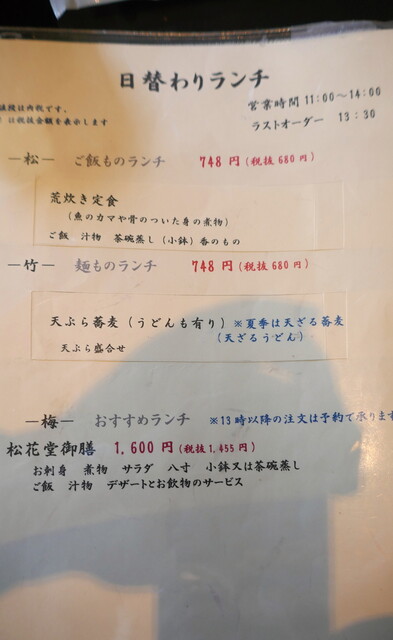 日替わりランチ
営業時間 11:00～14:00
ラストオーダー 13:30
値段は内税です。
）は税抜金額を表示します
―松― ご飯ものランチ 748円(税抜680円)
荒炊き定食
（魚のカマや骨のついた身の煮物）
ご飯 汁物 茶碗蒸し（小鉢）香のもの
―竹― 麺ものランチ 748円(税抜680円)
天ぷら蕎麦（うどんも有り）※夏季は天ざる蕎麦
（天ざるうどん）
天ぷら盛合せ
―梅― おすすめランチ ※13時以降の注文は予約で承ります
松花堂御膳 1,600円(税抜1,455円)
お刺身 煮物 サラダ 八寸 小鉢又は茶碗蒸し
ご飯 汁物 デザートとお飲物のサービス